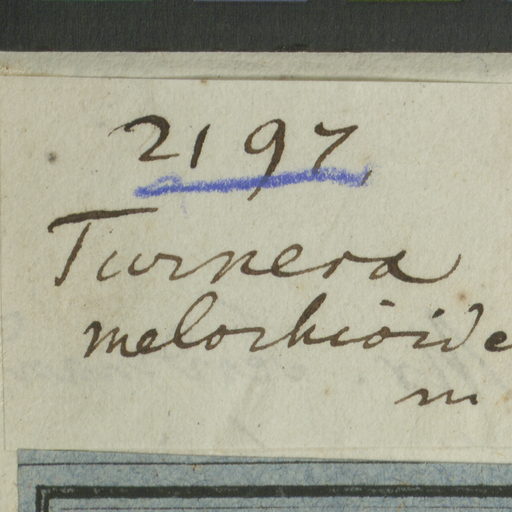 2197.
Turnera
melochioide
m